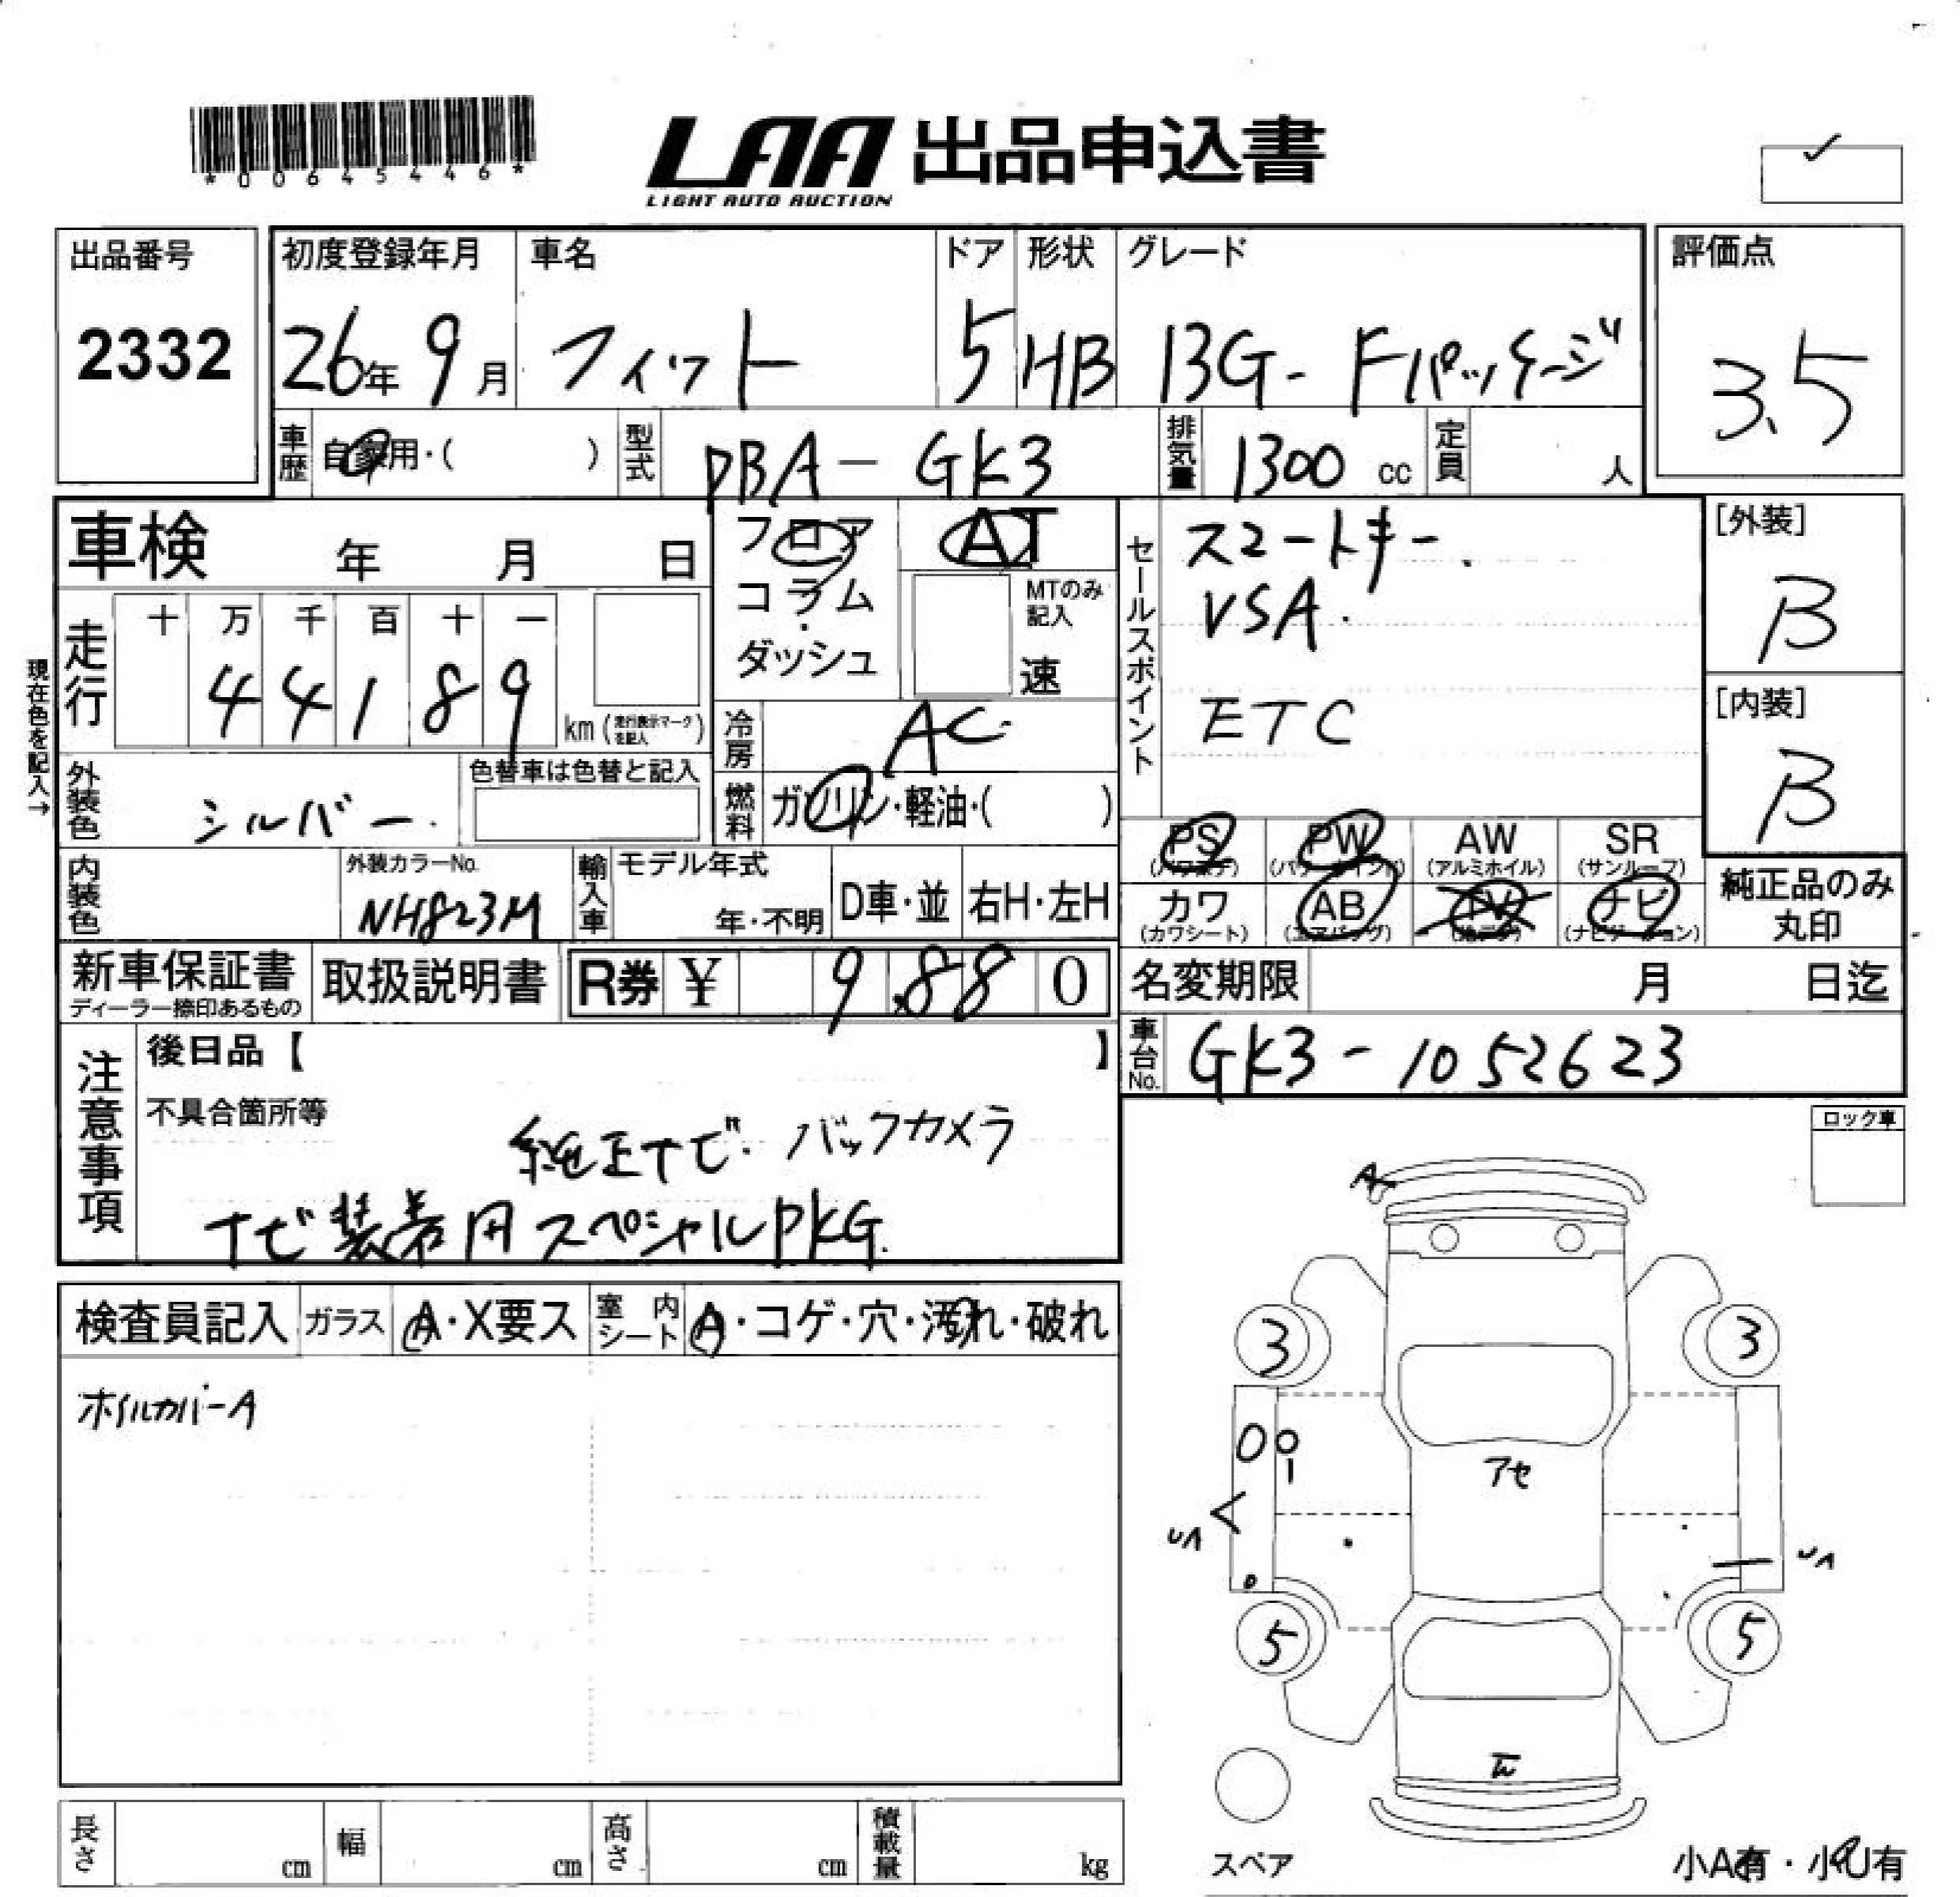 *00645446*
LAA 出品申込書
LIGHT AUTO AUCTION
出品番号
2332
初度登録年月
26年 9月
車名
フィット
ドア
5
形状
HB
グレード
13G-Fパッケージ
評価点
3.5
車歴
自家用・( )
型式
DBA-GK3
排気量
1300 cc
定員
人
車検 年 月 日
フロア
コラム
ダッシュ
AT
MTのみ記入
速
セールスポイント
スマートキー.
VSA.
ETC
[外装]
B
[内装]
B
現在色を記入→
走行
十 万 千 百 十 一
4 4 1 8 9
km (走行表示マークを記入)
冷房
AC
燃料
ガソリン・軽油・( )
外装色
シルバー
色替車は色替と記入
PS
(パワステ)
PW
(パワーウインド)
AW
(アルミホイル)
SR
(サンルーフ)
カワ
(カワシート)
AB
(エアバッグ)
TV
(地デジ)
ナビ
(ナビゲーション)
純正品のみ
丸印
内装色
外装カラーNo.
NH823M
輸入車
モデル年式
年・不明
D車・並
右H・左H
新車保証書
ディーラー捺印あるもの
取扱説明書
R券 ¥ 9,880
名変期限 月 日迄
車台No.
GK3-1052623
注意事項
後日品【 】
不具合箇所等
純正ナビ. バックカメラ
ナビ装着用スペシャルPKG.
ロック車
検査員記入
ガラス
A・X要ス
室内シート
A・コゲ・穴・汚れ・破れ
ホイルカバーA
A
3
3
アセ
5
5
スペア
小A有・小U有
長さ cm
幅 cm
高さ cm
積載量 kg